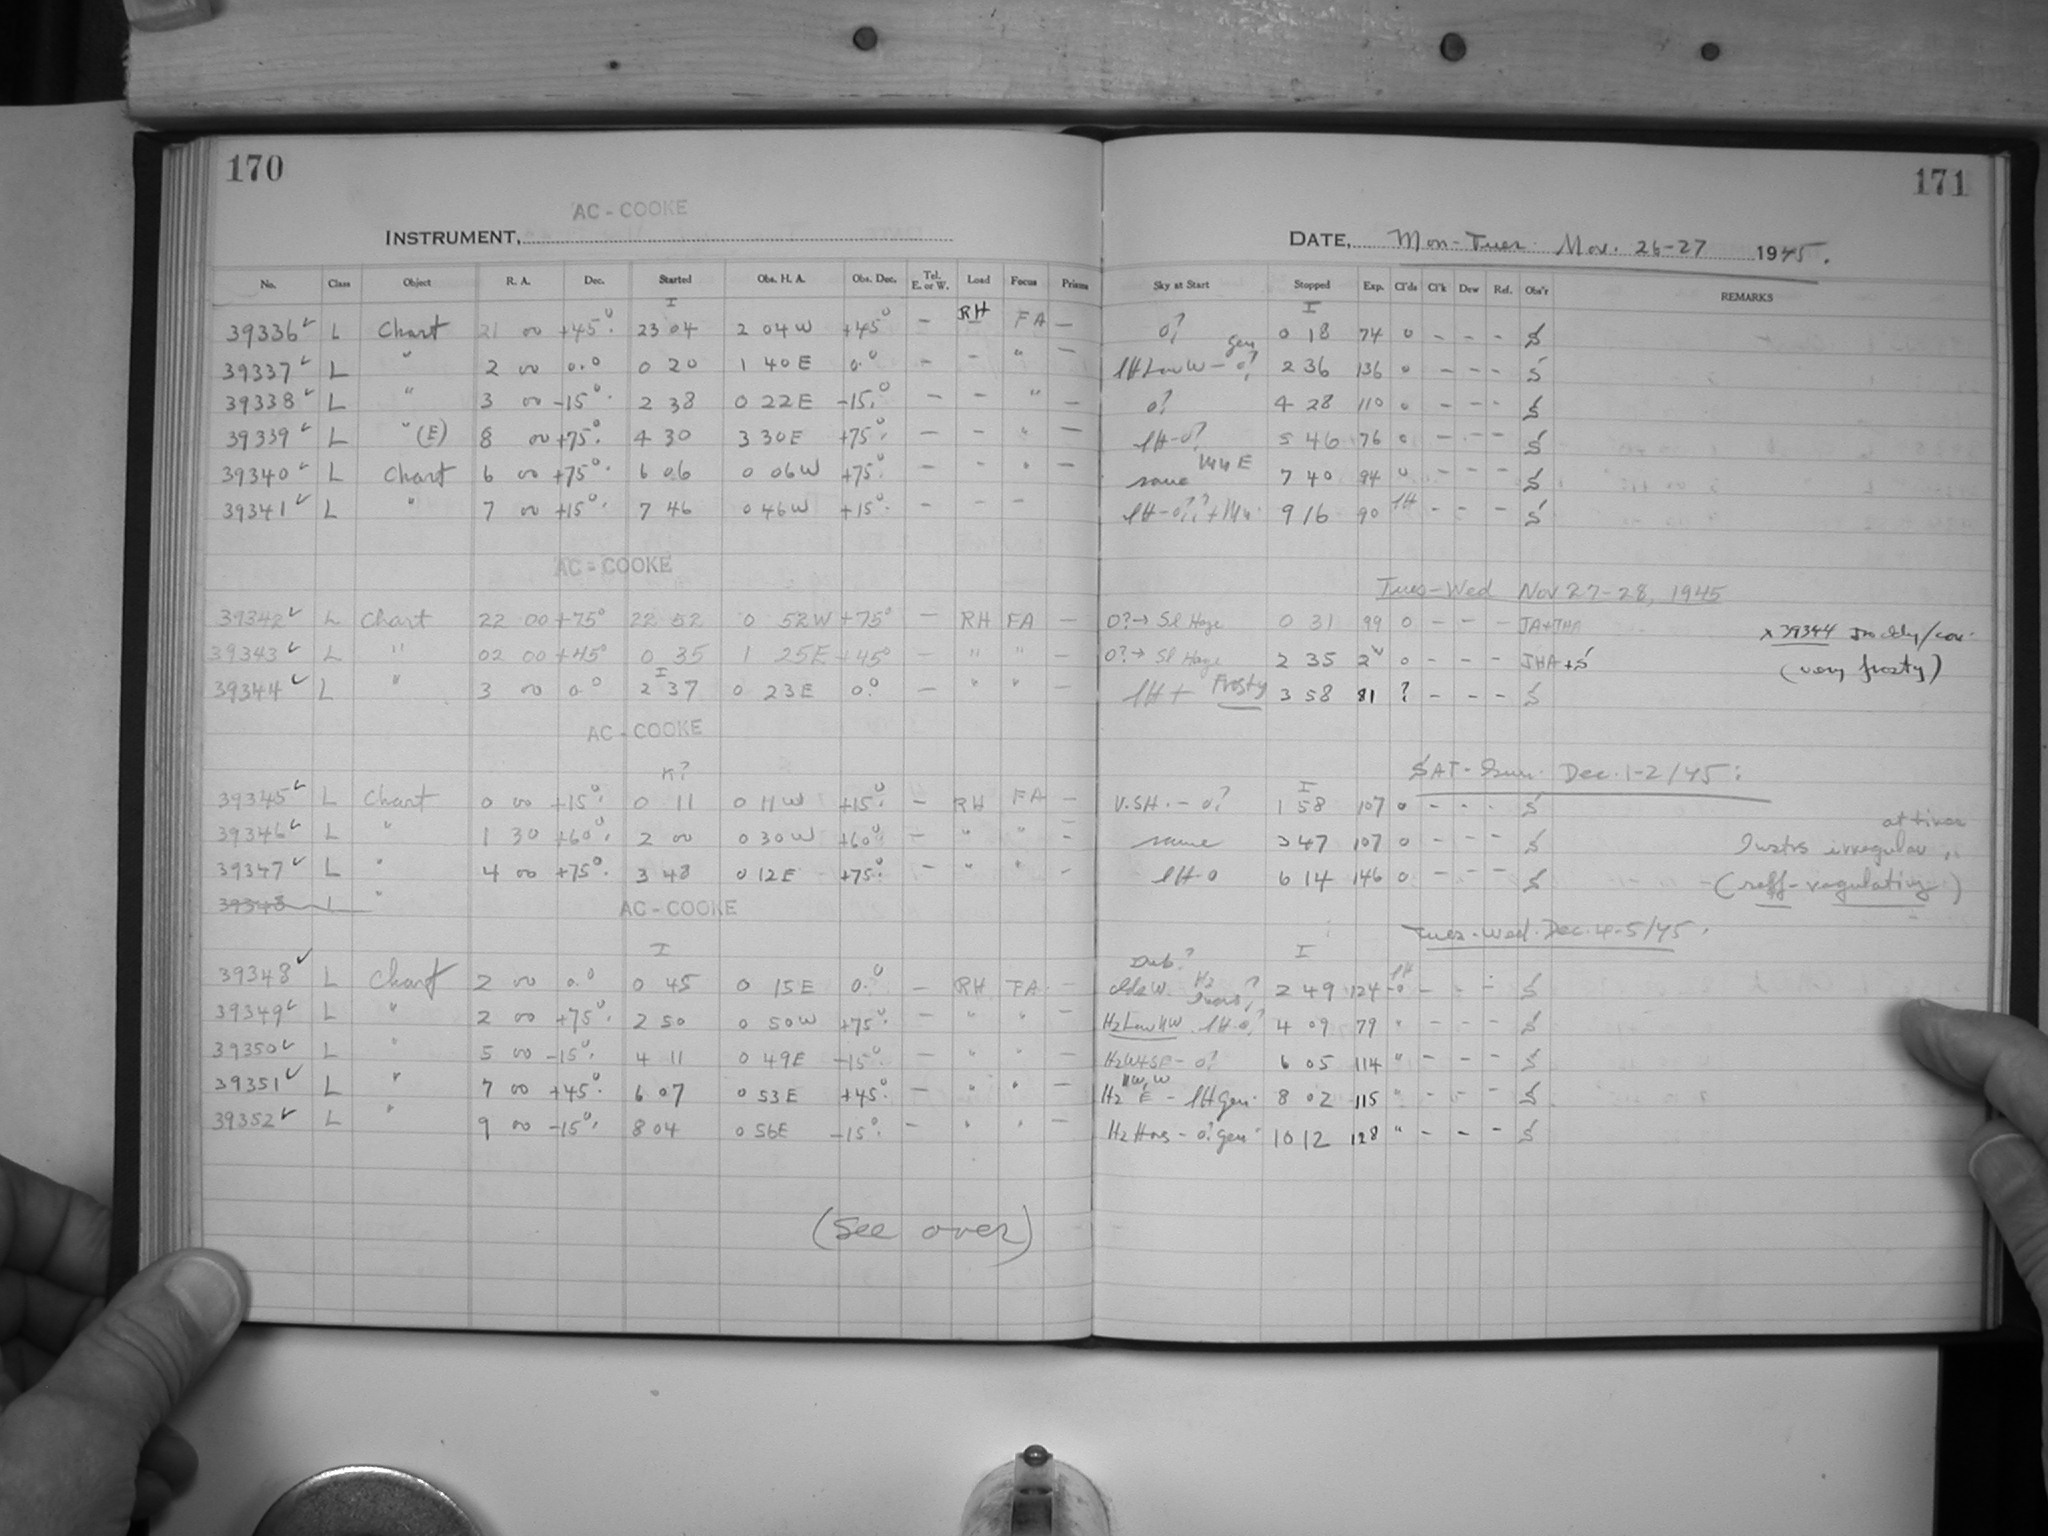 170
171
AC-COOKE
INSTRUMENT,
DATE, Mon-Tues. Nov. 26-27 1945.
No. Class Object R. A. Dec. Started Obs. H. A. Obs. Dec. Tel. E. or W. Load Focus Prisms Sky at Start Stopped Exp. Cl'ds Cl'k Dew Ref. Obs'r REMARKS
I I
39336 ✓ L Chart 21 00 +45° 23 04 2 04W +45° – RH FA – 0? 0 18 74 0 – – – S
39337 ✓ L " 2 00 0.° 0 20 1 40E 0.° – – " – lH Low W – 0? gen 2 36 136 0 – – – S
39338 ✓ L " 3 00 -15° 2 38 0 22E -15° – – " – 0? 4 28 110 0 – – – S
39339 ✓ L " (E) 8 00 +75° 4 30 3 30E +75° – – " – lH-0? 5 46 76 0 – – – S
39340 ✓ L Chart 6 00 +75° 6 06 0 06W +75° – – " – same 7 40 94 0 – – – S
39341 ✓ L " 7 00 +15° 7 46 0 46W +15° – – – lH-0?? 9 16 90 lH – – – S
AC-COOKE
Tues-Wed Nov 27-28, 1945
39342 ✓ L Chart 22 00 +75° 22 52 0 52W +75° – RH FA – 0?→ Sl Haze 0 31 99 0 – – –
x 39344
39343 ✓ L " 02 00 +45° 0 35 1 25E +45° – " " – 0?→ Sl Haze 2 35 0 – – – JHA+S
(very frosty)
I
39344 ✓ L " 3 00 0.° 2 37 0 23E 0.° – " " – lH + Frosty 3 58 81 ? – – – S
AC-COOKE
SAT-Sun. Dec. 1-2/45:
n? I
39345 ✓ L Chart 0 00 +15° 0 11 0 11W +15° – RH FA – V.SH. – 0? 1 58 107 0 – – – S
at times
39346 ✓ L " 1 30 +60° 2 00 0 30W +60° – " " – same 3 47 107 0 – – – S irregular
39347 ✓ L " 4 00 +75° 3 48 0 12E +75° – " " – lH-0 6 14 146 0 – – – S (self-regulating)
39348 L "
AC-COOKE
Tues-Wed. Dec. 4-5/45.
I I
39348 ✓ L Chart 2 00 0.° 0 45 0 15E 0.° – RH FA – 2 49 124 lH-0 – – – S
39349 ✓ L " 2 00 +75° 2 50 0 50W +75° – " " – Hz Low NW lH-0? 4 09 79 " – – – S
39350 ✓ L " 5 00 -15° 4 11 0 49E -15° – " " – Hz W+SE – 0? 6 05 114 " – – – S
39351 ✓ L " 7 00 +45° 6 07 0 53E +45° – " " – Hz NW, W E – lH gen. 8 02 115 " – – – S
39352 ✓ L " 9 00 -15° 8 04 0 56E -15° – " " – Hz Hors – 0? gen. 10 12 128 " – – – S
(see over)